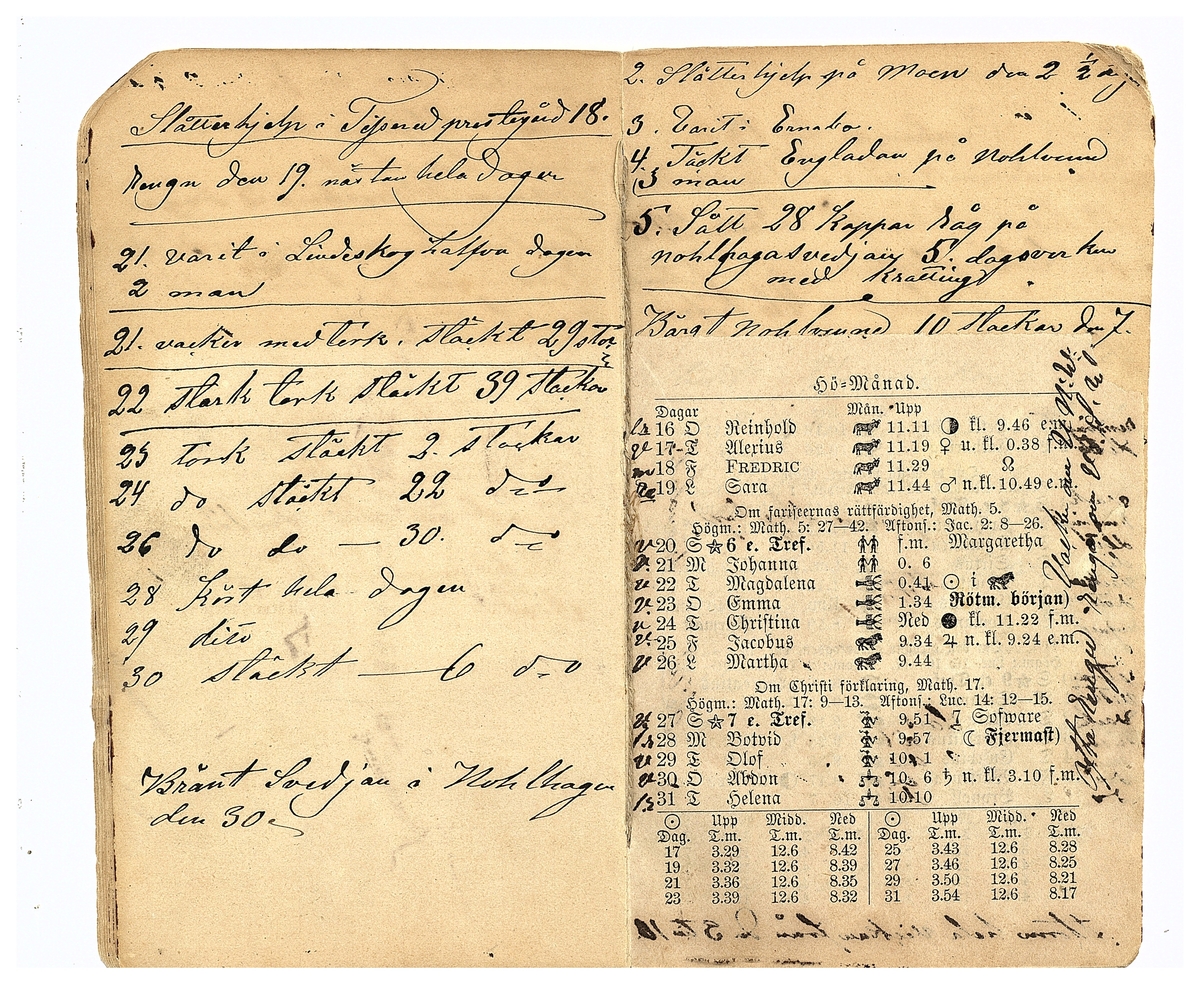 Slåtterhjelp i Tösered prestegård 18.
Rengn den 19. nästan hela dagen
21. varit i Lindeskog halfva dagen
2 man
21. vacker med tork. släckt 29 stor
22 stark tork släckt 39 stackar
23 tork släckt 2. stackar
24 do släckt 22 d:o
26 do do — 30. d:o
28 Kört hela dagen
29 dito
30 släckt — 6 d:o
Bränt Svedjan i Nohlhagen
den 30
2. Slåtterhjelp på Moen den 2 1/2
3. Varit i Ernebo.
4. Täckt Engladan på Nohlvrund
3 man
5. Sått 28 kappar Råg på
nohlhagasvedjan 5. dagsverken
med krattingd
Bärgt Nohlvrund 10 stackar den 7.
Hö-Månad.
Dagar Mån. Upp
16 O Reinhold 11.11 kl. 9.46 e.m.
17 T Alexius 11.19 ♀ u. kl. 0.38 f.m.
18 F FREDRIC 11.29 ☊
19 L Sara 11.44 ♂ n. kl. 10.49 e.m.
Om fariseernas rättfärdighet, Math. 5.
Högm.: Math. 5: 27—42. Aftons.: Jac. 2: 8—26.
20 S ☆ 6 e. Tref. f.m. Margaretha
21 M Johanna 0. 6
22 T Magdalena 0.41 ☉ i
23 O Emma 1.34 Rötm. början)
24 T Christina Ned ● kl. 11.22 f.m.
25 F Jacobus 9.34 ♃ n. kl. 9.24 e.m.
26 L Martha 9.44
Om Christi förklaring, Math. 17.
Högm.: Math. 17: 9—13. Aftons.: Luc. 14: 12—15.
27 S ☆ 7 e. Tref. 9.51 7 Sofware
28 M Botvid 9.57 ☾ Fjermast)
29 T Olof 10. 1
30 O Abdon 10. 6 ♄ n. kl. 3.10 f.m.
31 T Helena 10.10
☉ Upp Midd. Ned ☉ Upp Midd. Ned
Dag. T.m. T.m. T.m. Dag. T.m. T.m. T.m.
17 3.29 12.6 8.42 25 3.43 12.6 8.28
19 3.32 12.6 8.39 27 3.46 12.6 8.25
21 3.36 12.6 8.35 29 3.50 12.6 8.21
23 3.39 12.6 8.32 31 3.54 12.6 8.17